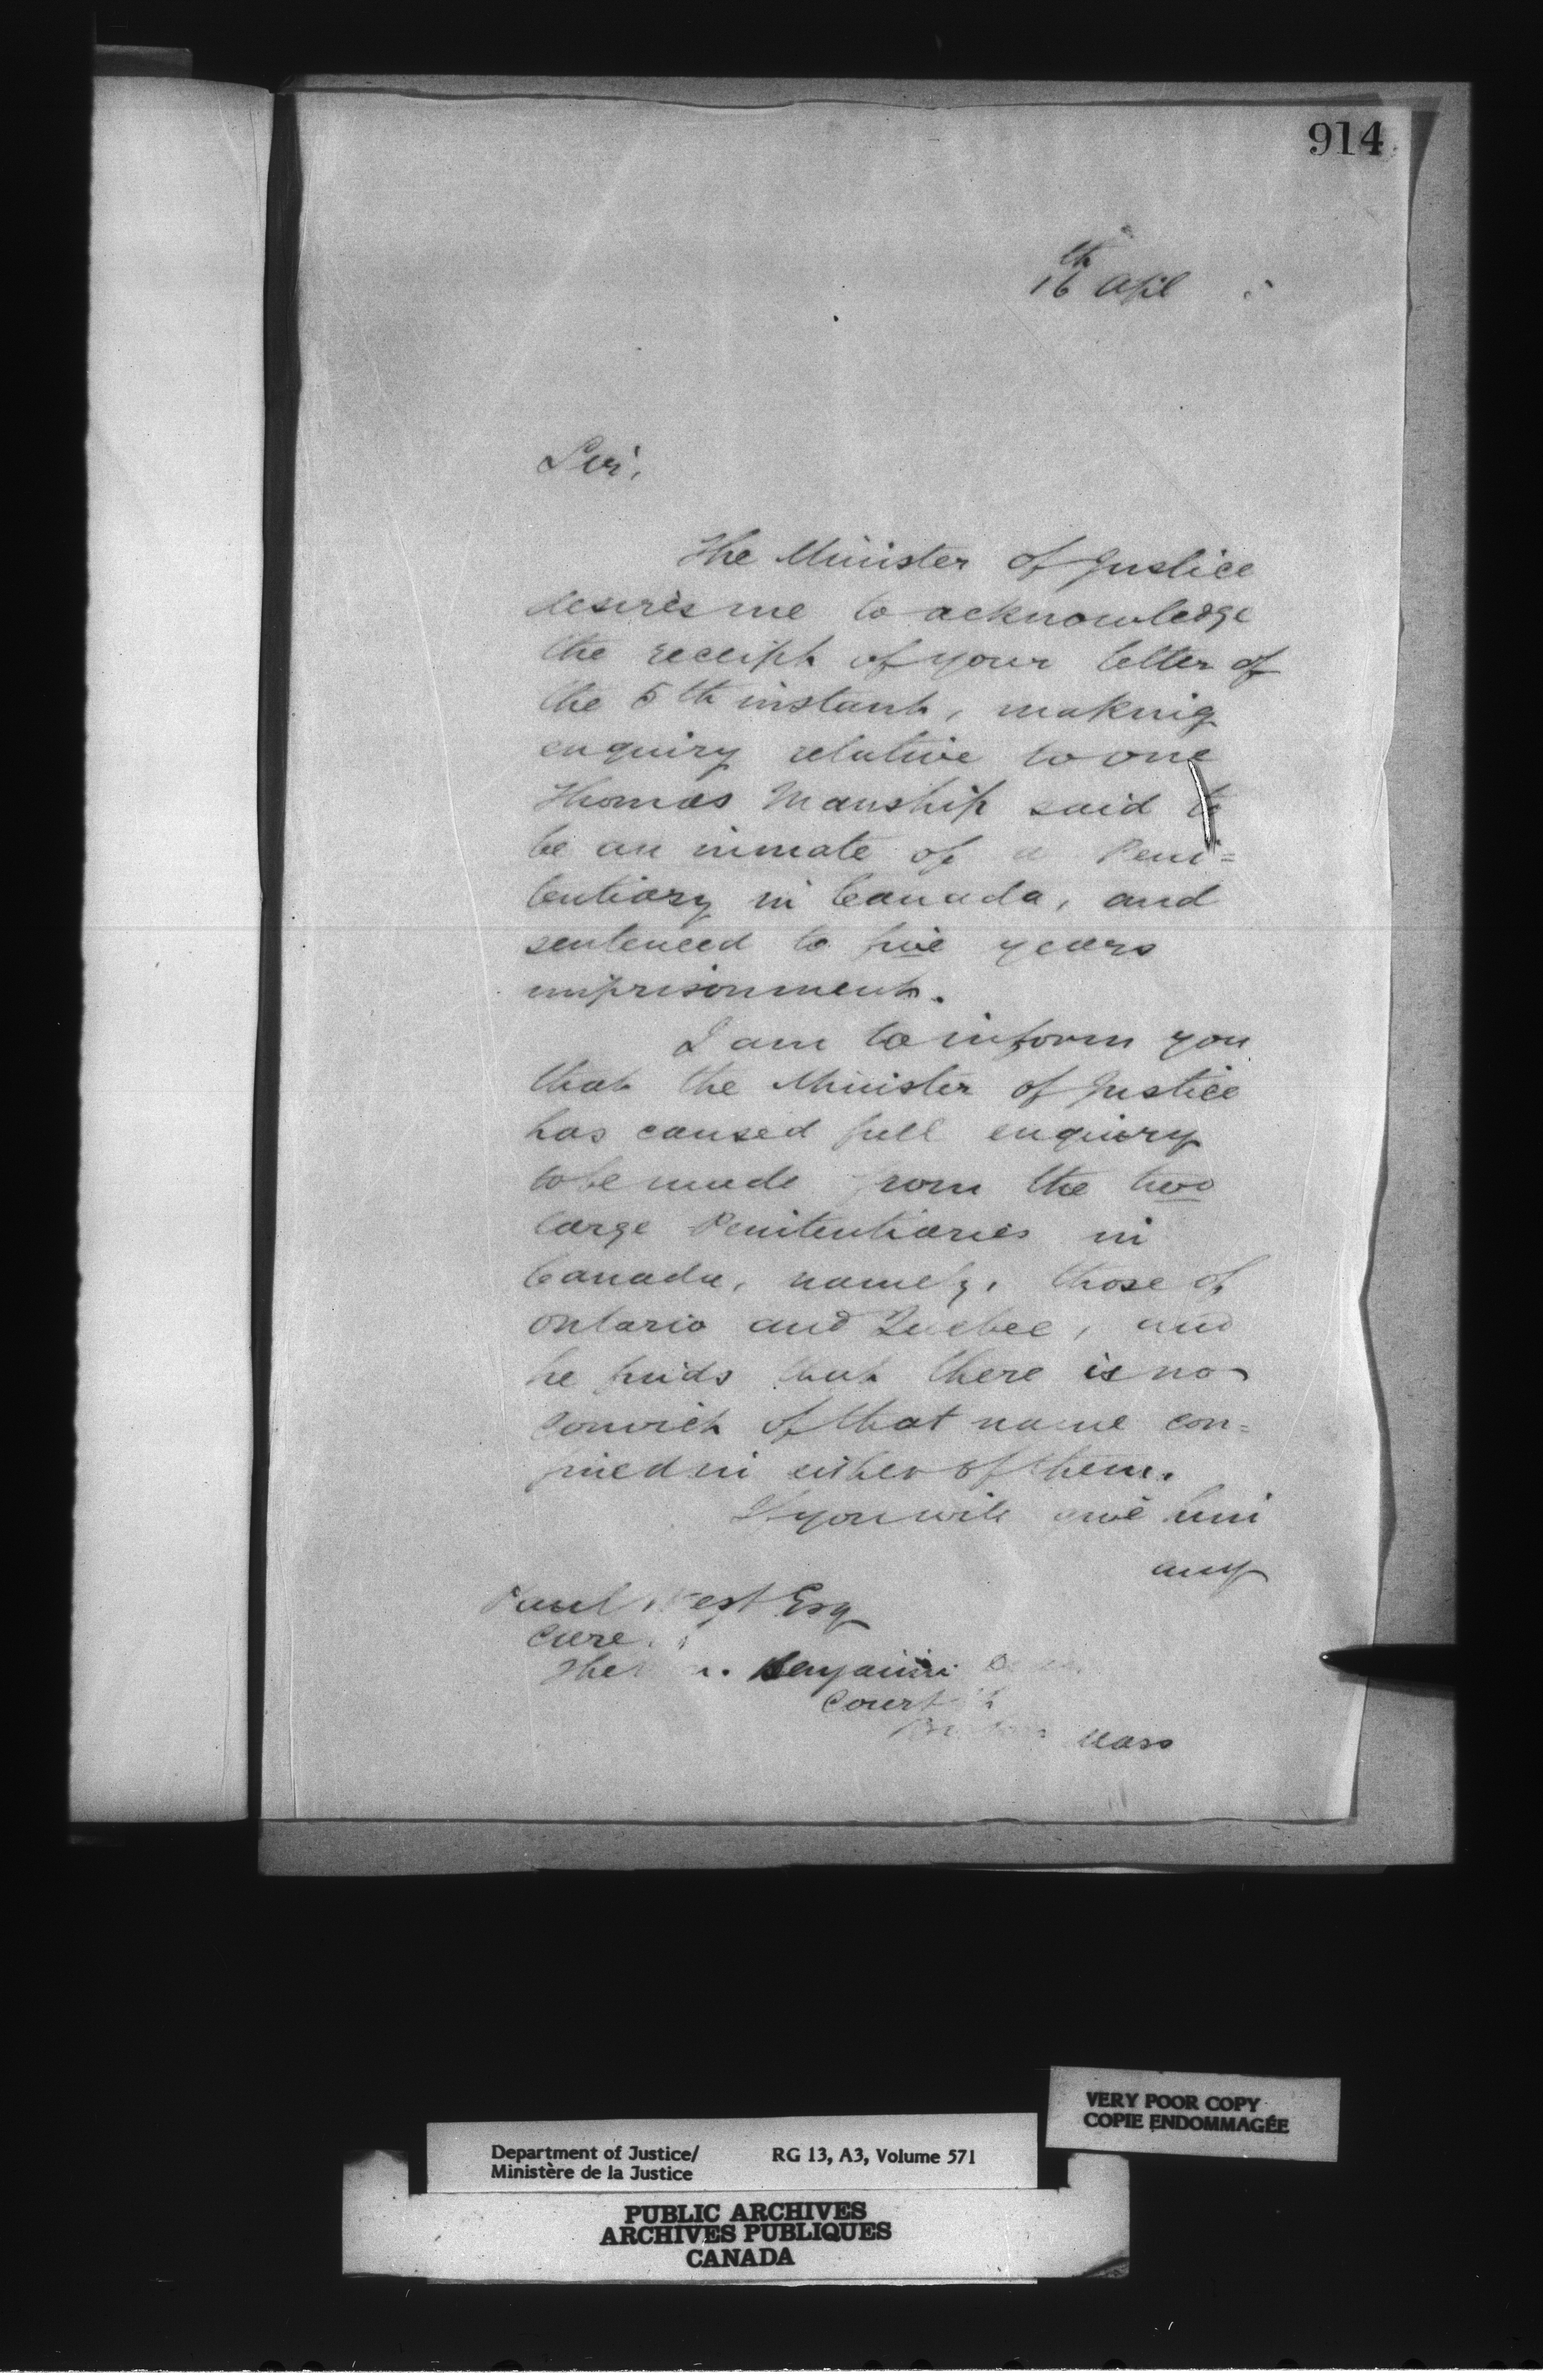 914
16th April
Sir,
The Minister of Justice
desires me to acknowledge
the receipt of your letter of
the 5th instant, making
enquiry relative to one
Thomas Manship said to
be an inmate of a Peni=
tentiary in Canada, and
sentenced to five years
imprisonment.
I am to inform you
that the Minister of Justice
has caused full enquiry
to be made from the two
large Penitentiaries in
Canada, namely, those of
Ontario and Quebec, and
he finds that there is no
convict of that name con=
fined in either of them.
If you will give him
any
Paul West Esq
Care
The Benjamin
Court
Mass
VERY POOR COPY
COPIE ENDOMMAGÉE
Department of Justice/ RG 13, A3, Volume 571
Ministère de la Justice
PUBLIC ARCHIVES
ARCHIVES PUBLIQUES
CANADA